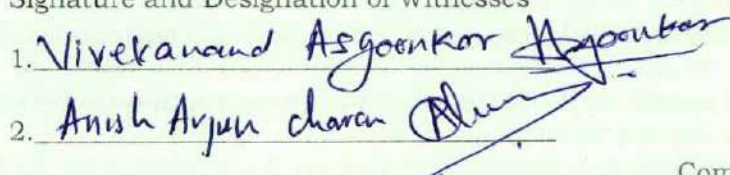 Signature and Designation of witnesses
1. Vivekanand Asgoonkor Asgoonkar
2. Anish Arjun charan
Com